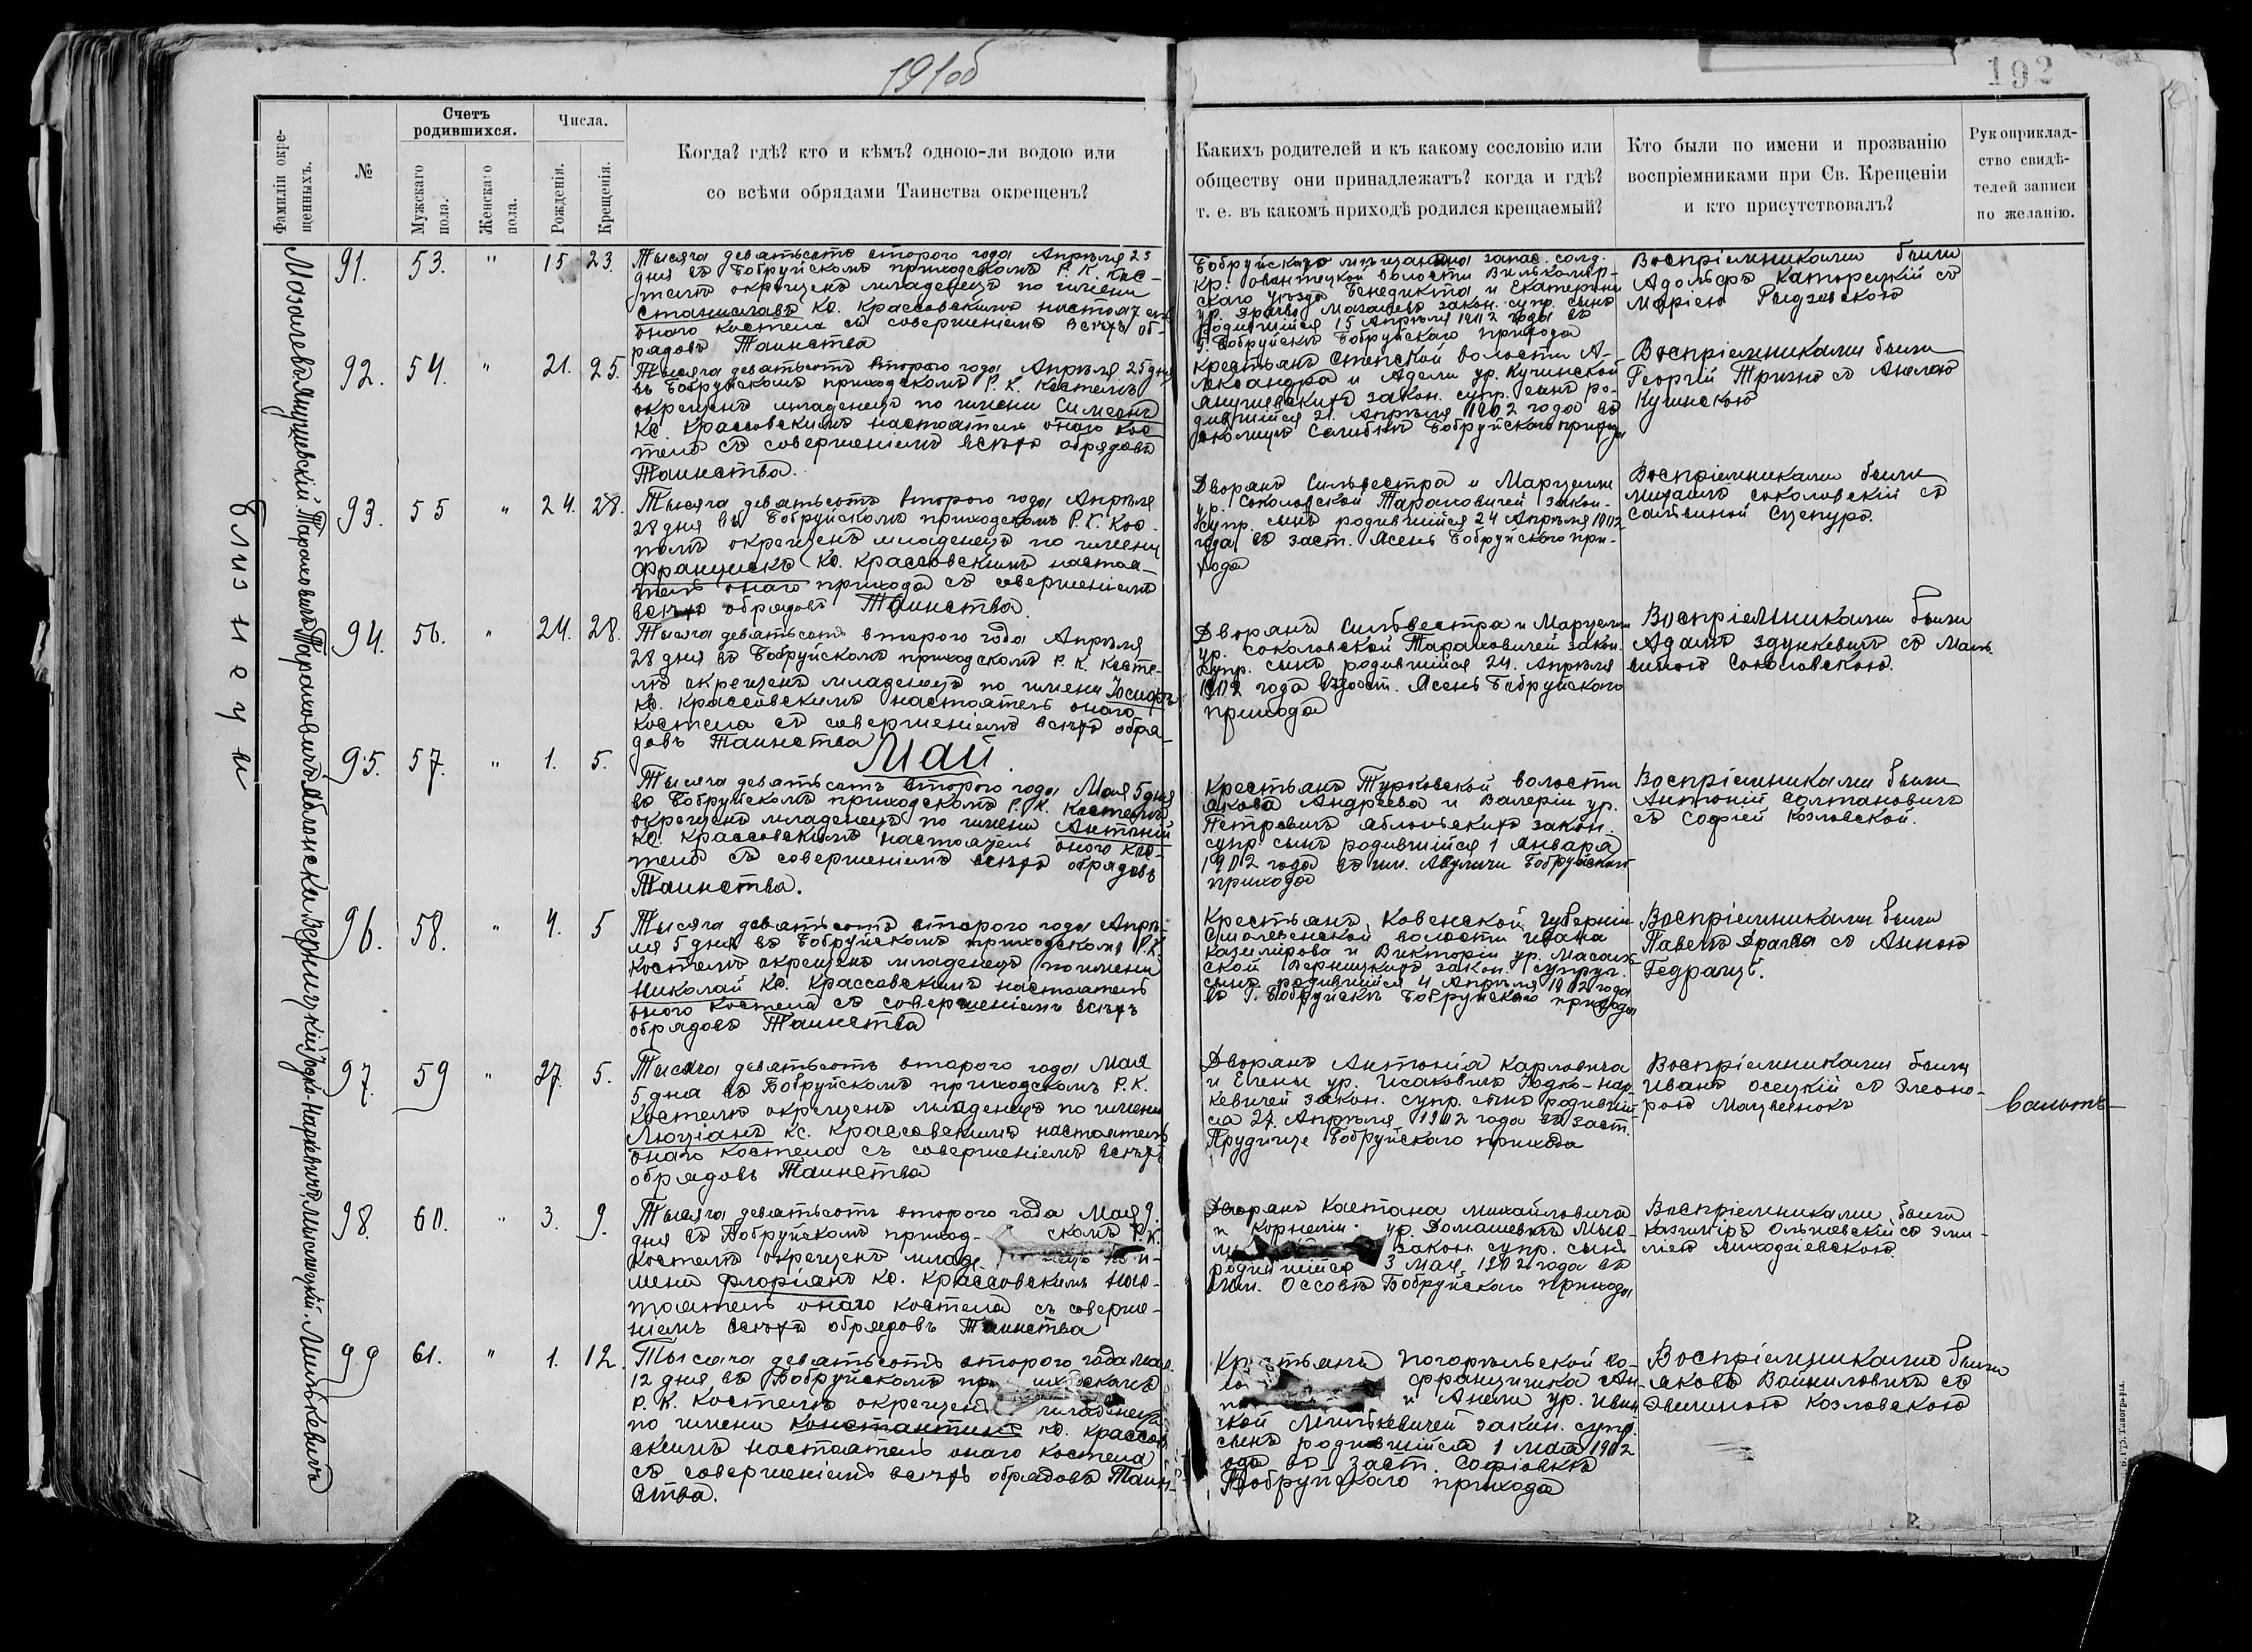 191об
192
Фамиліи окрещенныхъ.
№
Счетъ родившихся.
Мужскаго пола.
Женскаго пола.
Числа.
Рожденія.
Крещенія.
Когда? гдѣ? кто и кѣмъ? одною-ли водою или
со всѣми обрядами Таинства окрещенъ?
Какихъ родителей и къ какому сословію или
обществу они принадлежатъ? когда и гдѣ?
т. е. въ какомъ приходѣ родился крещаемый?
Кто были по имени и прозванію
воспріемниками при Св. Крещеніи
и кто присутствовалъ?
Рукоприклад-
ство свидѣ-
телей записи
по желанію.
близнецы
91. 53. " 15 23.
Тысяча девятьсотъ второго года Апрѣля 23
дня въ Бобруйскомъ приходскомъ Р. К. Кос-
телѣ окрещенъ младенецъ по имени
Станиславъ Кс. Крассовскимъ настоятель
онаго костела съ совершеніемъ всѣхъ об-
рядовъ Таинства
Бобруйскаго мѣщанина запас. солд.
кр. волости Вилькомір-
скаго уѣзда Бенедикта и Екатерины
ур. закон. супр. сынъ
родившійся 15 Апрѣля 1902 года въ
г. Бобруйскѣ Бобруйскаго прихода
Воспріемниками были
Адольфъ Каторецкій съ
Маріею Рыдзевскою
92. 54. " 21. 25.
Тысяча девятьсотъ второго года Апрѣля 25 дня
въ Бобруйскомъ приходскомъ Р. К. Костелѣ
окрещенъ младенецъ по имени Симеонъ
Кс. Крассовскимъ настоятель онаго кос
тела съ совершеніемъ всѣхъ обрядовъ
Таинства.
Крестьянъ волости А-
лександра и Адели ур. Кучинской
Янушевскихъ закон. супр. сынъ ро-
дившійся 21. Апрѣля 1902 года въ
околицѣ Бобруйскаго прихода
Воспріемниками были
Георгій Тризно съ Анелею
Кучинскою
93. 55 " 24. 28.
Тысяча девятьсотъ второго года Апрѣля
28 дня въ Бобруйскомъ приходскомъ Р. К. Кос-
телѣ окрещенъ младенецъ по имени
Францискъ Кс. Крассовскимъ настоя-
тель онаго прихода съ совершеніемъ
всѣхъ обрядовъ Таинства.
Дворянъ Сильвестра и Марцели
ур. Соколовской Тараховичей закон.
супр. сынъ родившійся 24 Апрѣля 1902
года въ заст. Ясень Бобруйскаго при-
хода
Воспріемниками были
Михаилъ Соколовскій съ
94. 56. " 24. 28.
Тысяча девятьсотъ второго года Апрѣля
28 дня въ Бобруйскомъ приходскомъ Р. К. Косте-
лѣ окрещенъ младенецъ по имени Іосифъ
Кс. Крассовскимъ настоятель онаго
костела съ совершеніемъ всѣхъ обря-
довъ Таинства
Дворянъ Сильвестра и Марцели
ур. Соколовской Тараховичей закон.
супр. сынъ родившійся 24. Апрѣля
1902 года въ заст. Ясень Бобруйскаго
прихода
Воспріемниками были
Адамъ Здункевичъ съ Маль
виною Соколовскою.
Май.
95. 57. " 1. 5.
Тысяча девятьсотъ второго года Мая 5 дня
въ Бобруйскомъ приходскомъ Р. К. Костелѣ
окрещенъ младенецъ по имени Антоній
Кс. Крассовскимъ настоятель онаго кос-
тела съ совершеніемъ всѣхъ обрядовъ
Таинства.
Крестьянъ Турковской волости
Якова Андреева и Валеріи ур.
Петровичъ Яблонскихъ закон.
супр. сынъ родившійся 1 Января
1902 года въ им. Бобруйскаго
прихода
Воспріемниками были
Антоній Солтановичъ
съ Софіей Козловской.
96. 58. " 4. 5
Тысяча девятьсотъ второго года Апрѣ-
ля 5 дня въ Бобруйскомъ приходскомъ Р. К.
Костелѣ окрещенъ младенецъ по имени
Николай Кс. Крассовскимъ настоятель
онаго костела съ совершеніемъ всѣхъ
обрядовъ Таинства
Крестьянъ Ковенской губерніи
волости Ивана
Казимірова и Викторіи ур.
ской Верницкихъ закон. супруг.
сынъ родившійся 4 Апрѣля 1902 года
въ г. Бобруйскѣ Бобруйскаго прихода
Воспріемниками были
Павелъ съ Анною
97. 59 " 27. 5.
Тысяча девятьсотъ второго года Мая
5 дня въ Бобруйскомъ приходскомъ Р. К.
Костелѣ окрещенъ младенецъ по имени
Люціанъ Кс. Крассовскимъ настоятель
онаго Костела съ совершеніемъ всѣхъ
обрядовъ Таинства
Дворянъ Антонія Карловича
и Елены ур. Исаковичъ Іодко-Нар
кевичей закон. супр. сынъ родивші-
ся 27. Апрѣля 1902 года въ заст.
Прудище Бобруйскаго прихода
Воспріемниками были
Иванъ Осецкій съ Элеоно-
рою
98. 60. " 3. 9.
Тысяча девятьсотъ второго года Мая 9
дня въ Бобруйскомъ приход- скомъ Р. К.
Костелѣ окрещенъ младе по и-
мени Флоріанъ Кс. Крассовскимъ нас-
тоятель онаго костела съ соверше-
ніемъ всѣхъ обрядовъ Таинства
Дворянъ Каетана Михайловича
и Корнеліи ур. Домашевичъ Мыс-
закон. супр. сынъ
родившійся 3 Мая 1902 года въ
им. Оссовъ Бобруйскаго прихода
Воспріемниками были
Казиміръ Ольшевскій съ Эми-
ліею
99 61. " 1. 12.
Тысяча девятьсотъ второго года Мая
12 дня въ Бобруйскомъ приходскомъ
Р. К. Костелѣ окрещенъ младенецъ
по имени Константинъ Кс. Крассов
скимъ настоятель онаго костела
съ совершеніемъ всѣхъ обрядовъ Таин-
ства.
Погорѣльской во-
Францишка Ан-
и Анели ур.
ской Милькевичей закон. супр.
сынъ родившійся 1 мая 1902
ода въ заст. Софіовкѣ
Бобруйскаго прихода
Воспріемниками были
Яковъ Войниловичъ съ
Эвелиною Козловскою